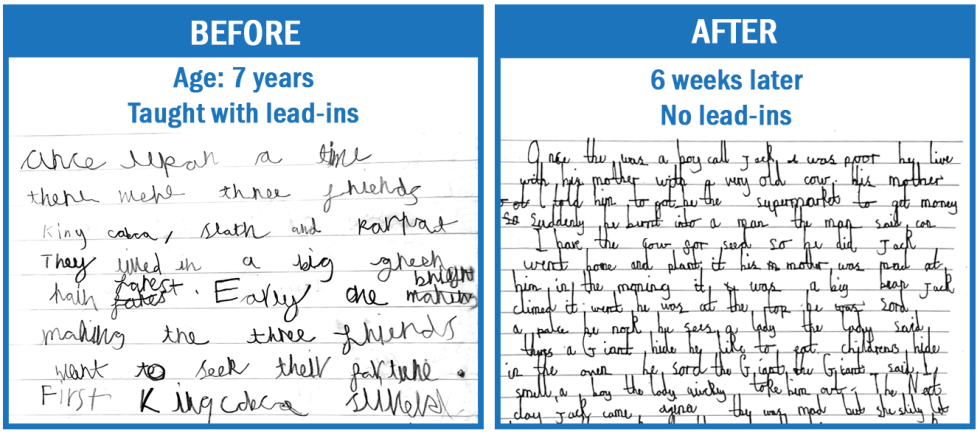 BEFORE
Age: 7 years
Taught with lead-ins
once upon a time
there were three friends
King cobra, Slath and
They lived in a big green
forest. Early one bright
making the three friends
want to seek their fortune.
First King cobra
AFTER
6 weeks later
No lead-ins
Once the was a boy call Jack it was poor he live
with his mother with a very old cow. his mother
told him to got he the supermarket to get money
so suddenly he burnt into a man the man said can
I have the cow for seed so he did Jack
went home and plant it his mother was mad at
him in the morning it was a big bean Jack
climed it went he was at the top he was sord
a palce he nock he sees a lady the lady said
thers a Giant hide he like to eat childrens hide
in the oven he sord the Giant, the Giant said I
smell a boy the lady quickly take him out. The Next
day Jack came agena they was mad but she